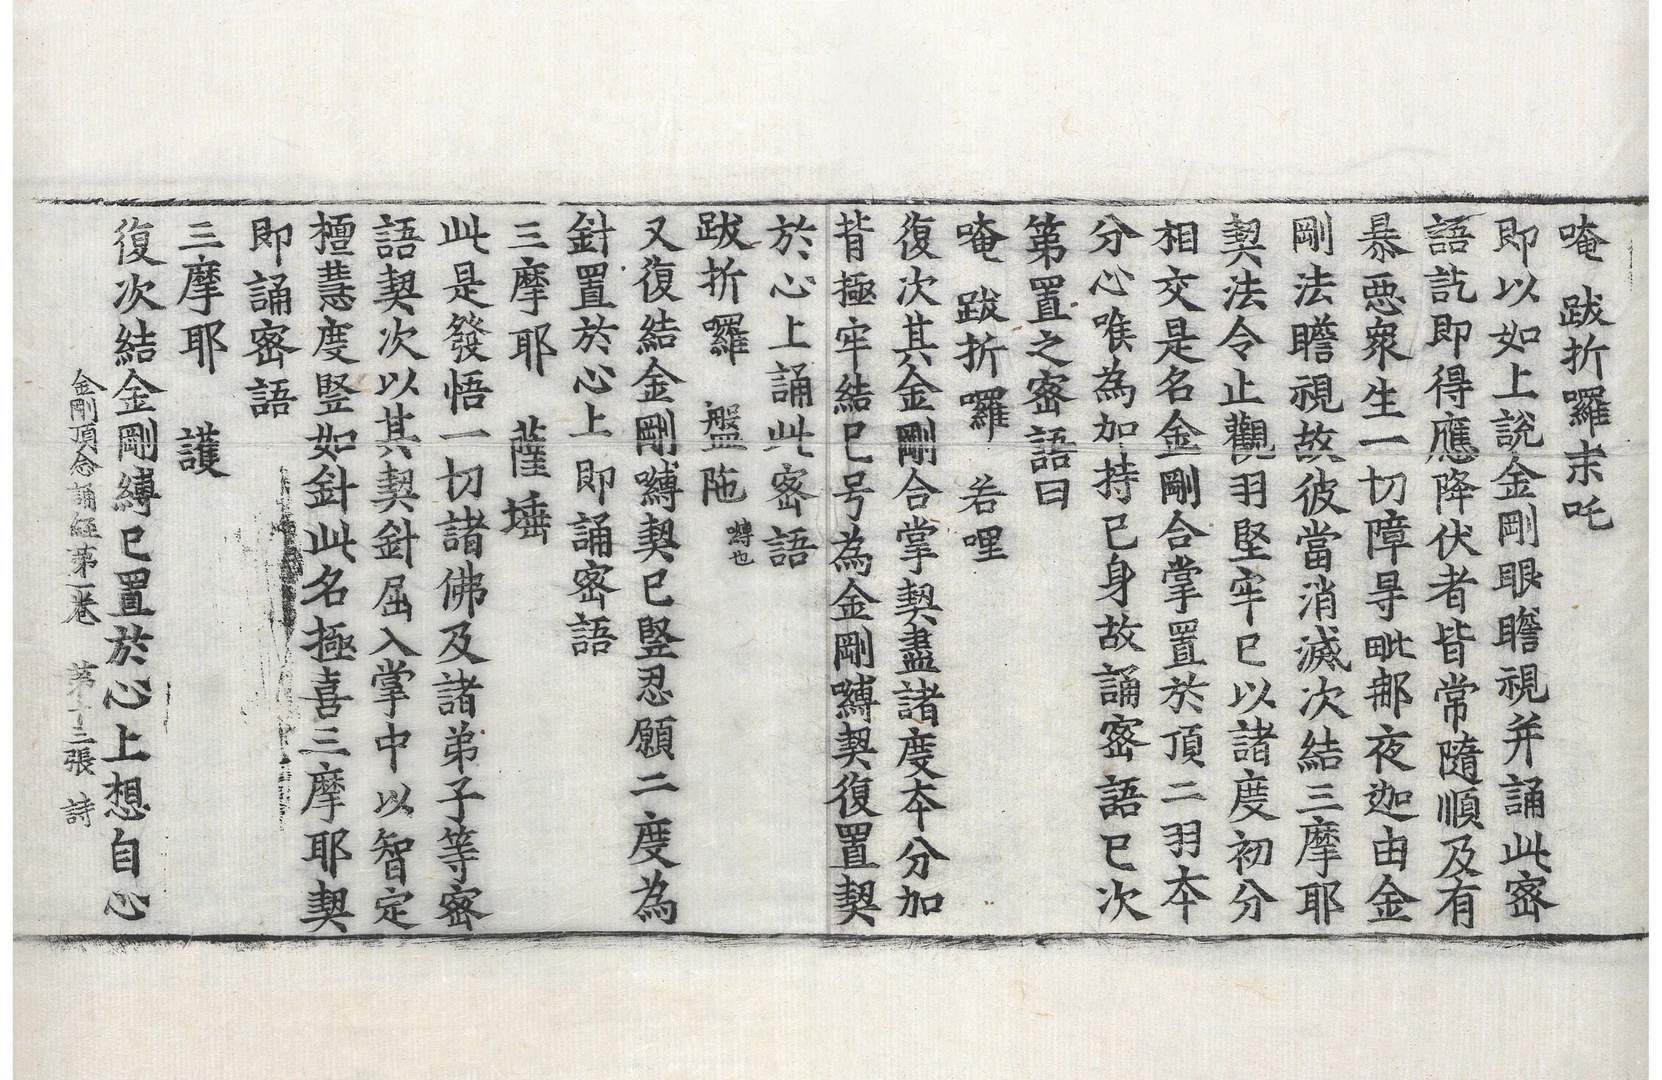 唵 跋折囉末吒
即以如上說金剛眼瞻視并誦此密
語訖即得應降伏者皆常隨順及有
暴惡衆生一切障㝵毗那夜迦由金
剛法瞻視故彼當消滅次結三摩耶
契法令止觀羽堅牢已以諸度初分
相交是名金剛合掌置於頂二羽夲
分心唯為加持已身故誦密語已次
第置之密語曰
唵 跋折囉 若哩
復次其金剛合掌契盡諸度夲分加
背極牢結已号為金剛嚩契復置契
於心上誦此密語
跋折囉 盤陁 嚩也
又復結金剛嚩契已竪忍願二度為
針置於心上即誦密語
三摩耶 薩埵
此是發悟一切諸佛及諸弟子等密
語契次以其契針屈入掌中以智定
檀慧度竪如針此名極喜三摩耶契
即誦密語
三摩耶 護
復次結金剛縛已置於心上想自心
金剛頂念誦經第一卷 第十三張 詩